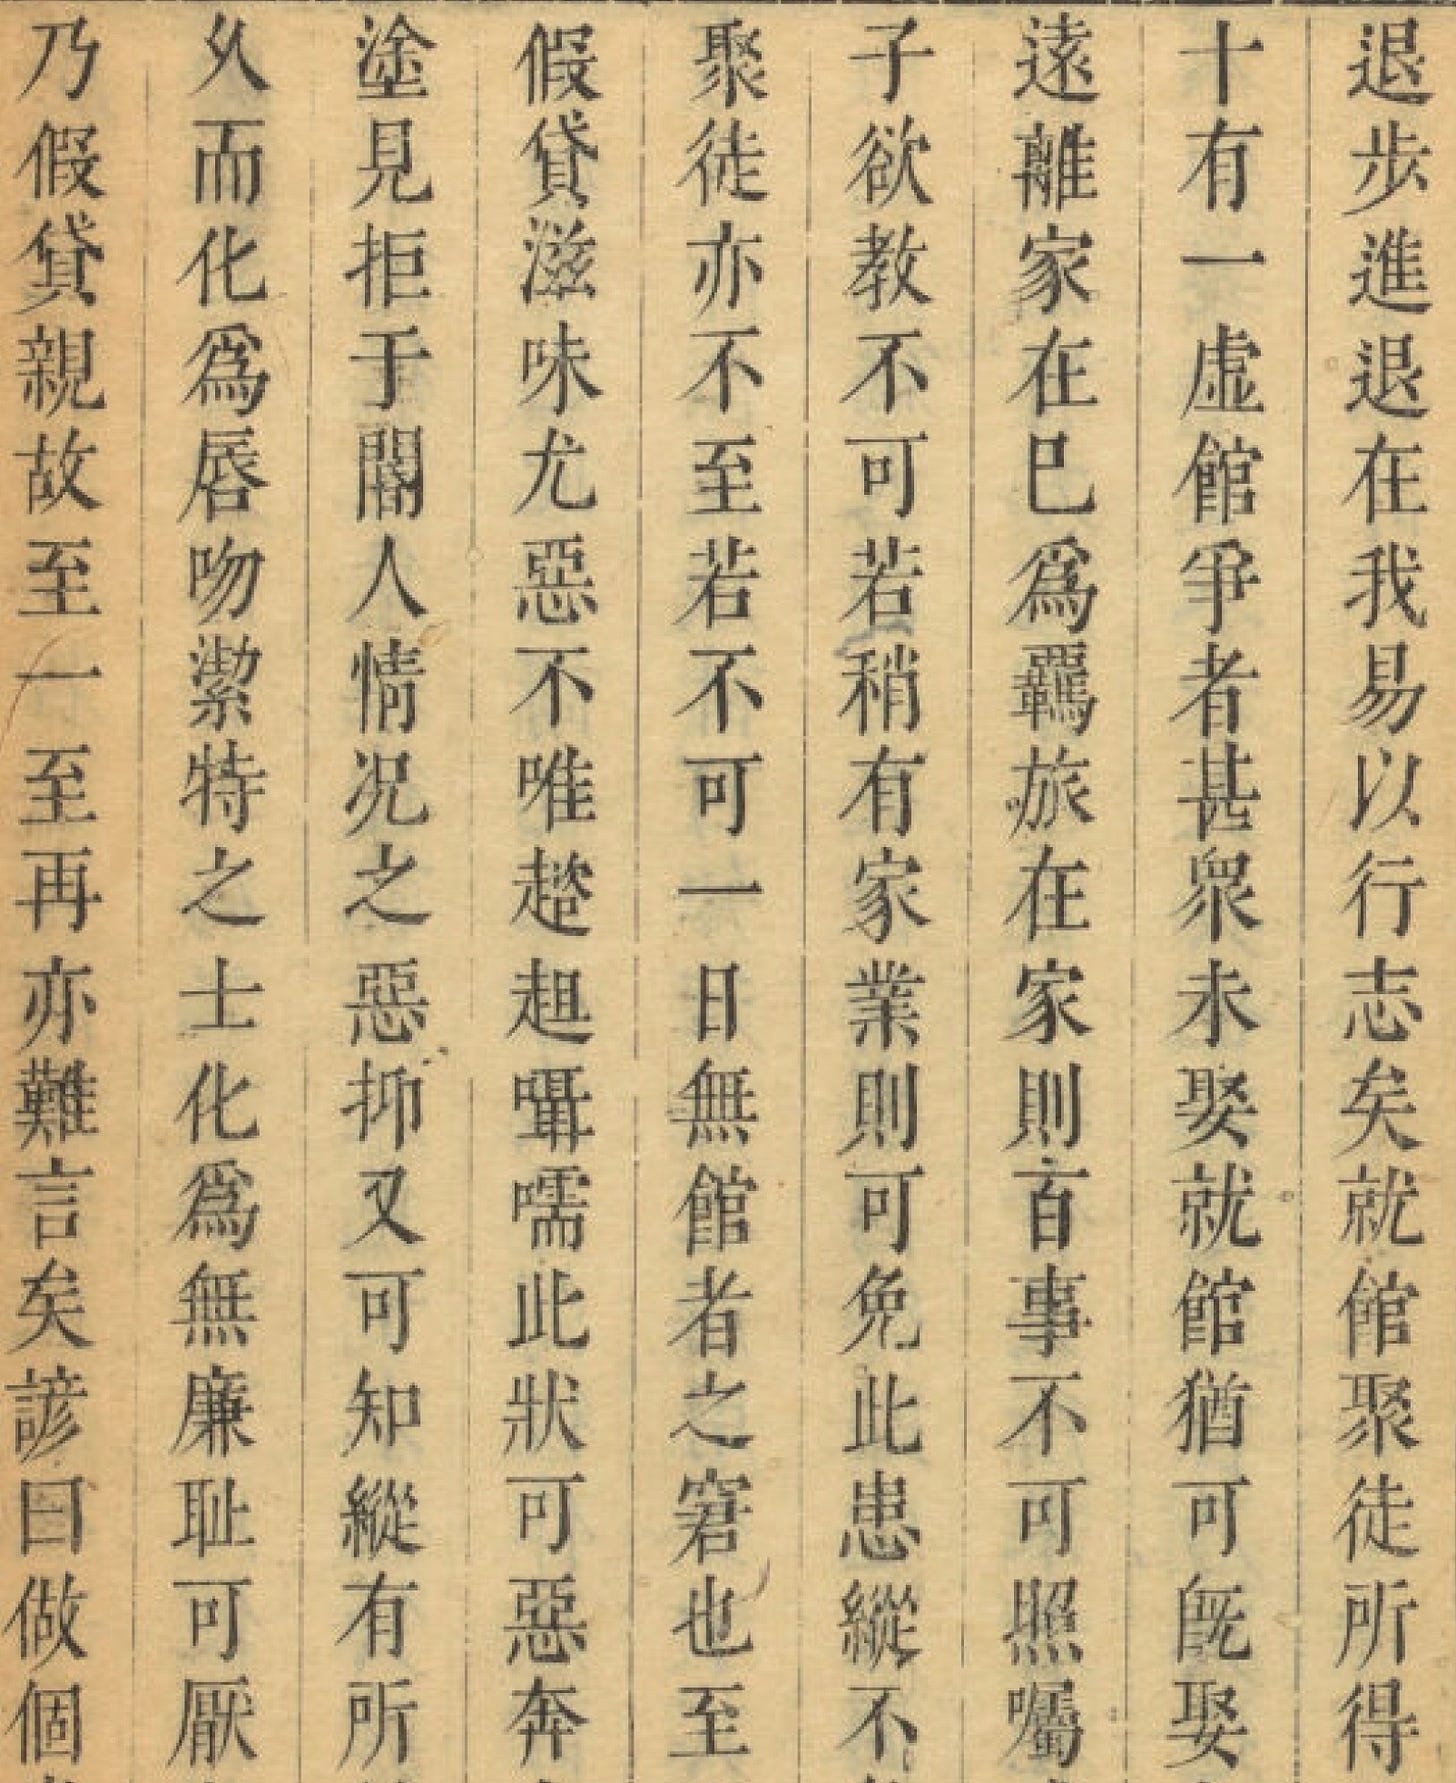 退步進退在我易以行志矣就館聚徒所得
十有一虛館爭者甚衆未娶就館猶可旣娶
遠離家在巳爲羈旅在家則百事不可照囑
子欲教不可若稍有家業則可免此患縱不
聚徒亦不至若不可一日無館者之窘也至
假貸滋味尤惡不唯趦趄囁嚅此狀可惡奔
塗見拒于閽人情况之惡抑又可知縱有所
乆而化爲唇吻㓗特之士化爲無廉耻可厭
乃假貸親故至一至再亦難言矣諺曰做個